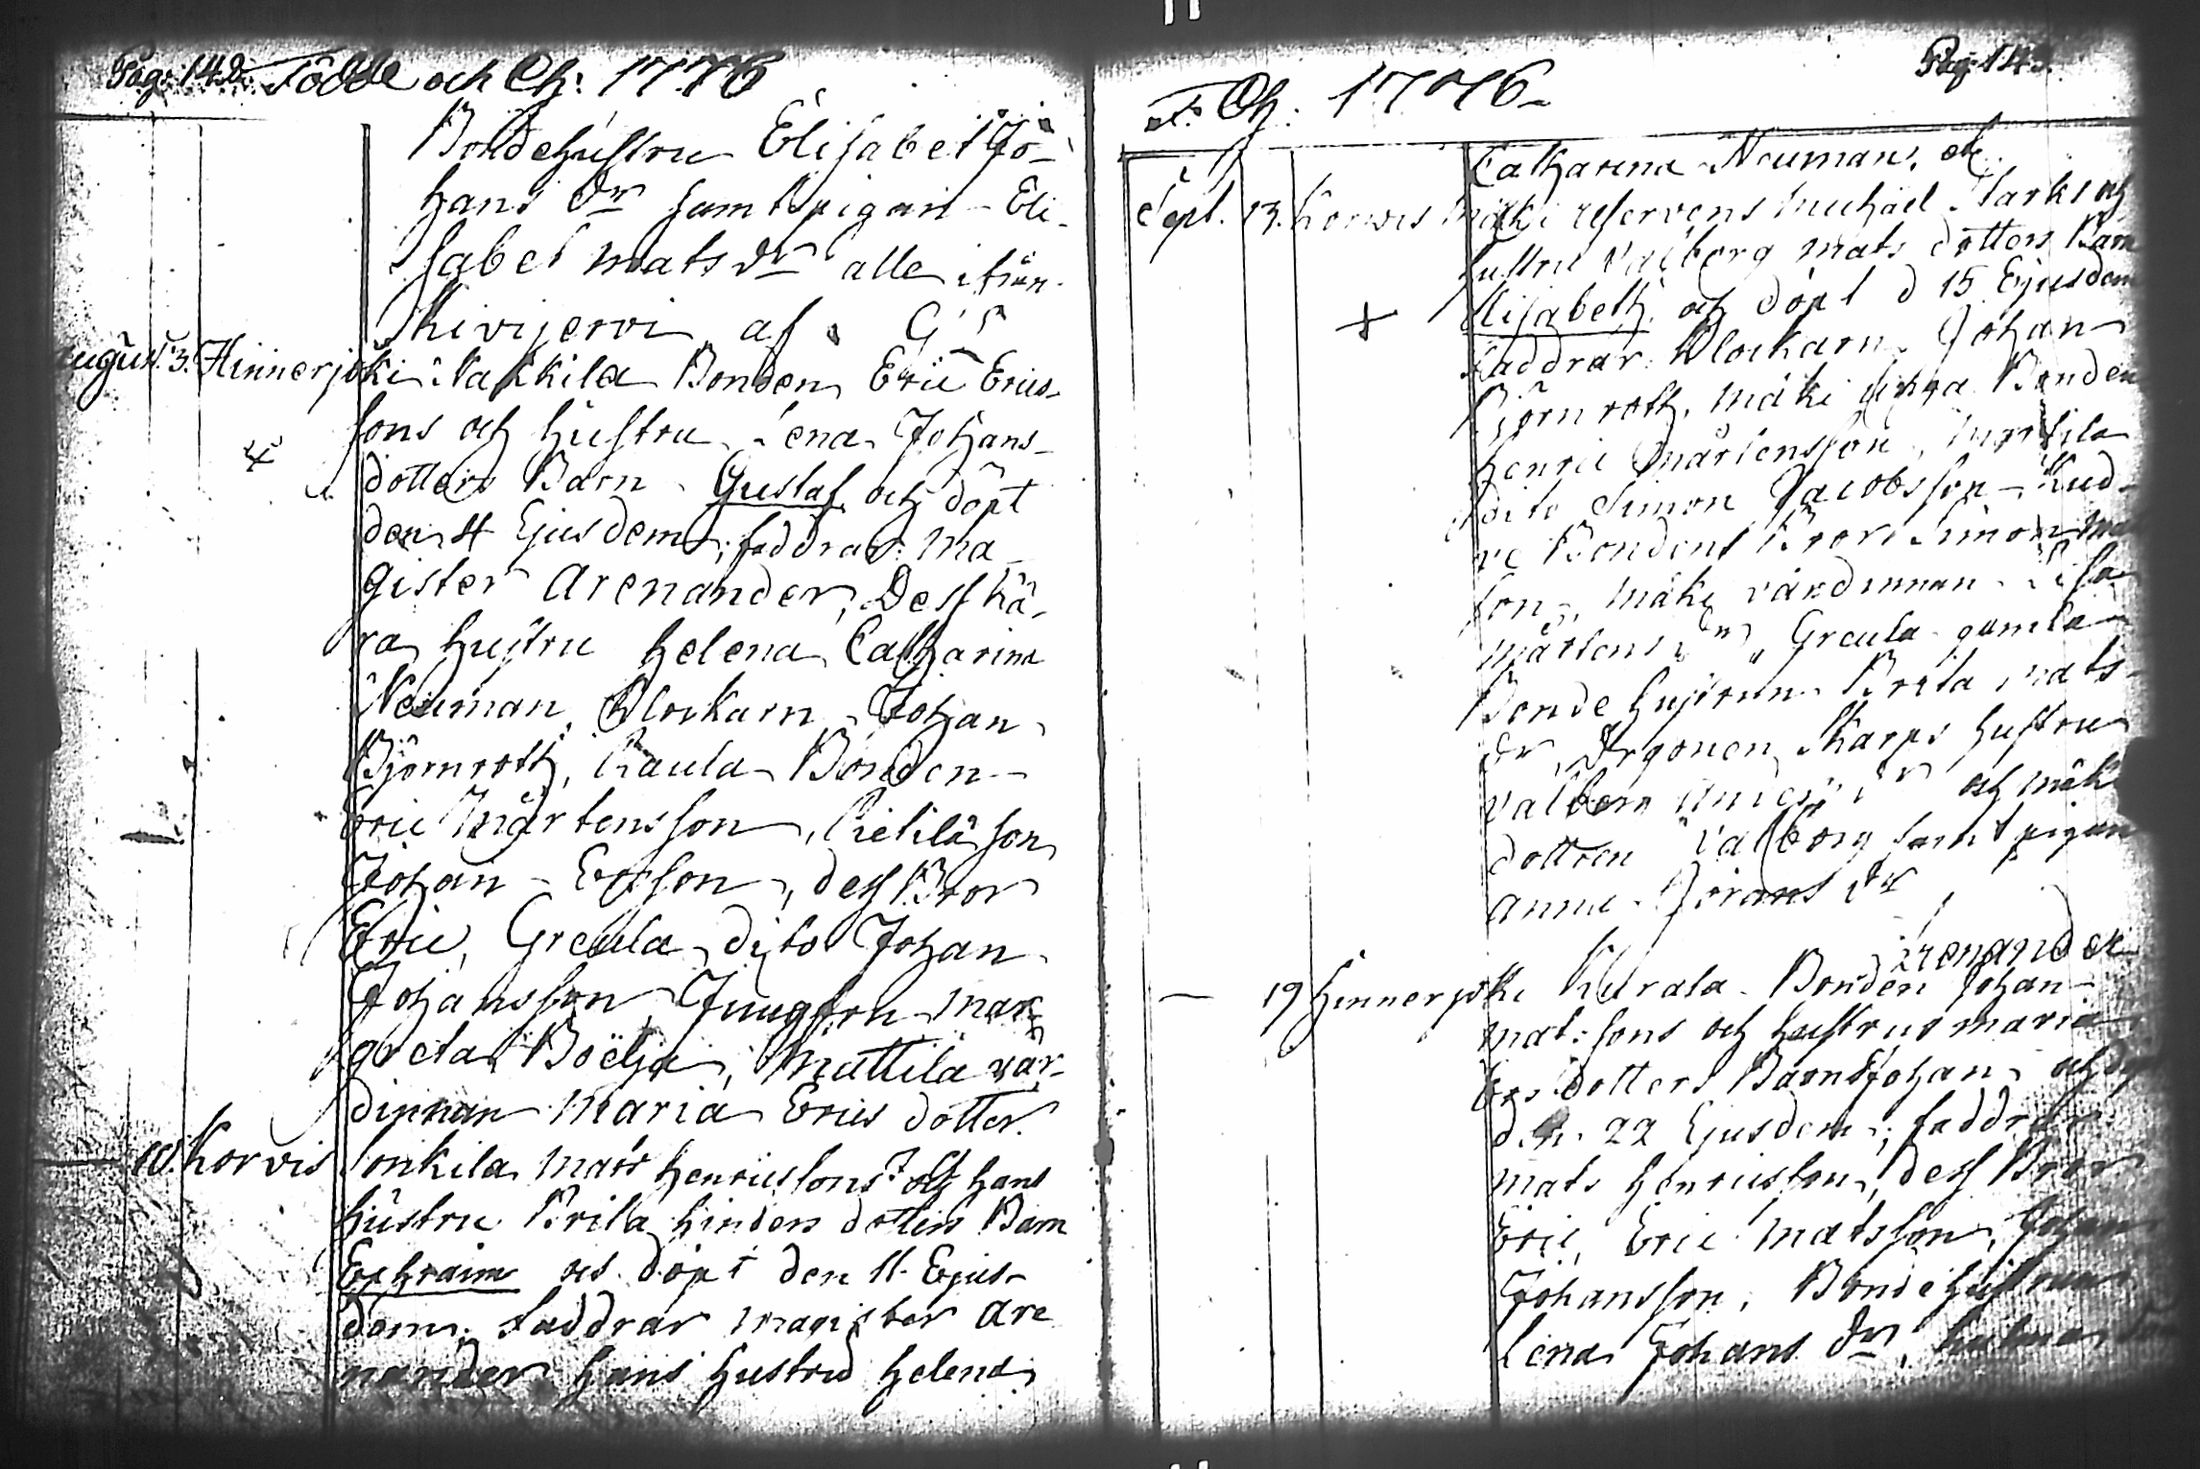 Pag: 142. Födde och Ch: 1776
Bondehustru Elisabet Jo-
hans dr samt pigan Eli-
sabet Mats dr alle ifrån
Kivijervi af G:S
August. 3. Hinnerjoki Nakkila Bonden Eric Erics-
sons och hustru Lena Johans-
dotters Barn Gustaf och döpt
den 4 Ejusdem; faddrar: Ma-
gister Arenander, Dess kä-
ra hustru Helena Catharina
Neuman, Klockarn Johan
Björnroth, Kaula Bonden
Eric Mårtensson, Pietilä son
Johan Ericsson, dess Bror
Eric, Greula dito Johan
Johansson, Jungfru Mar-
greta Boëlja, Mattila vär-
dinnan Maria Erics dotter.
10. Korvis Sonkila Mats Henricssons och hans
hustru Brita Hinders dotters Barn
Ephraim och döpt den 11. Ejus-
dem. Faddrar Magister Are
nander hans hustru Helena
F. Ch: 1776. Pag: 143.
Catharina Neuman, etc.
Sept. 13. Korvis Mäki reservens Michäel Starks och
hustru Valborg Mats dotters Barn
Elisabeth och döpt d 15 Ejusdem
Faddrar: Klockarn Johan
Björnroth, Mäki Bonden
Henric Mårtensson, Marttila
dito Simon Jacobsson
Bondens Bror Simon
son, Mäki värdinnan Lisa
Mårtens dr, Greula gamla
Bonde hustrun Brita Mats
dr, Skarps hustru
Valborg Anders dr och Mäki
dottren Valborg samt pigan
Anna Jörans dr
Arenander
19 Hinnerjoki Kurala Bonden Johan
Mat:sons och hustrus Maria
Ers dotters Barn Johan och döpt
den 22 Ejusdem; faddrar
Mats Henricsson, dess Bror
Eric, Eric Matsson, Johan
Johansson, Bondehustrun
Lena Johans dr,